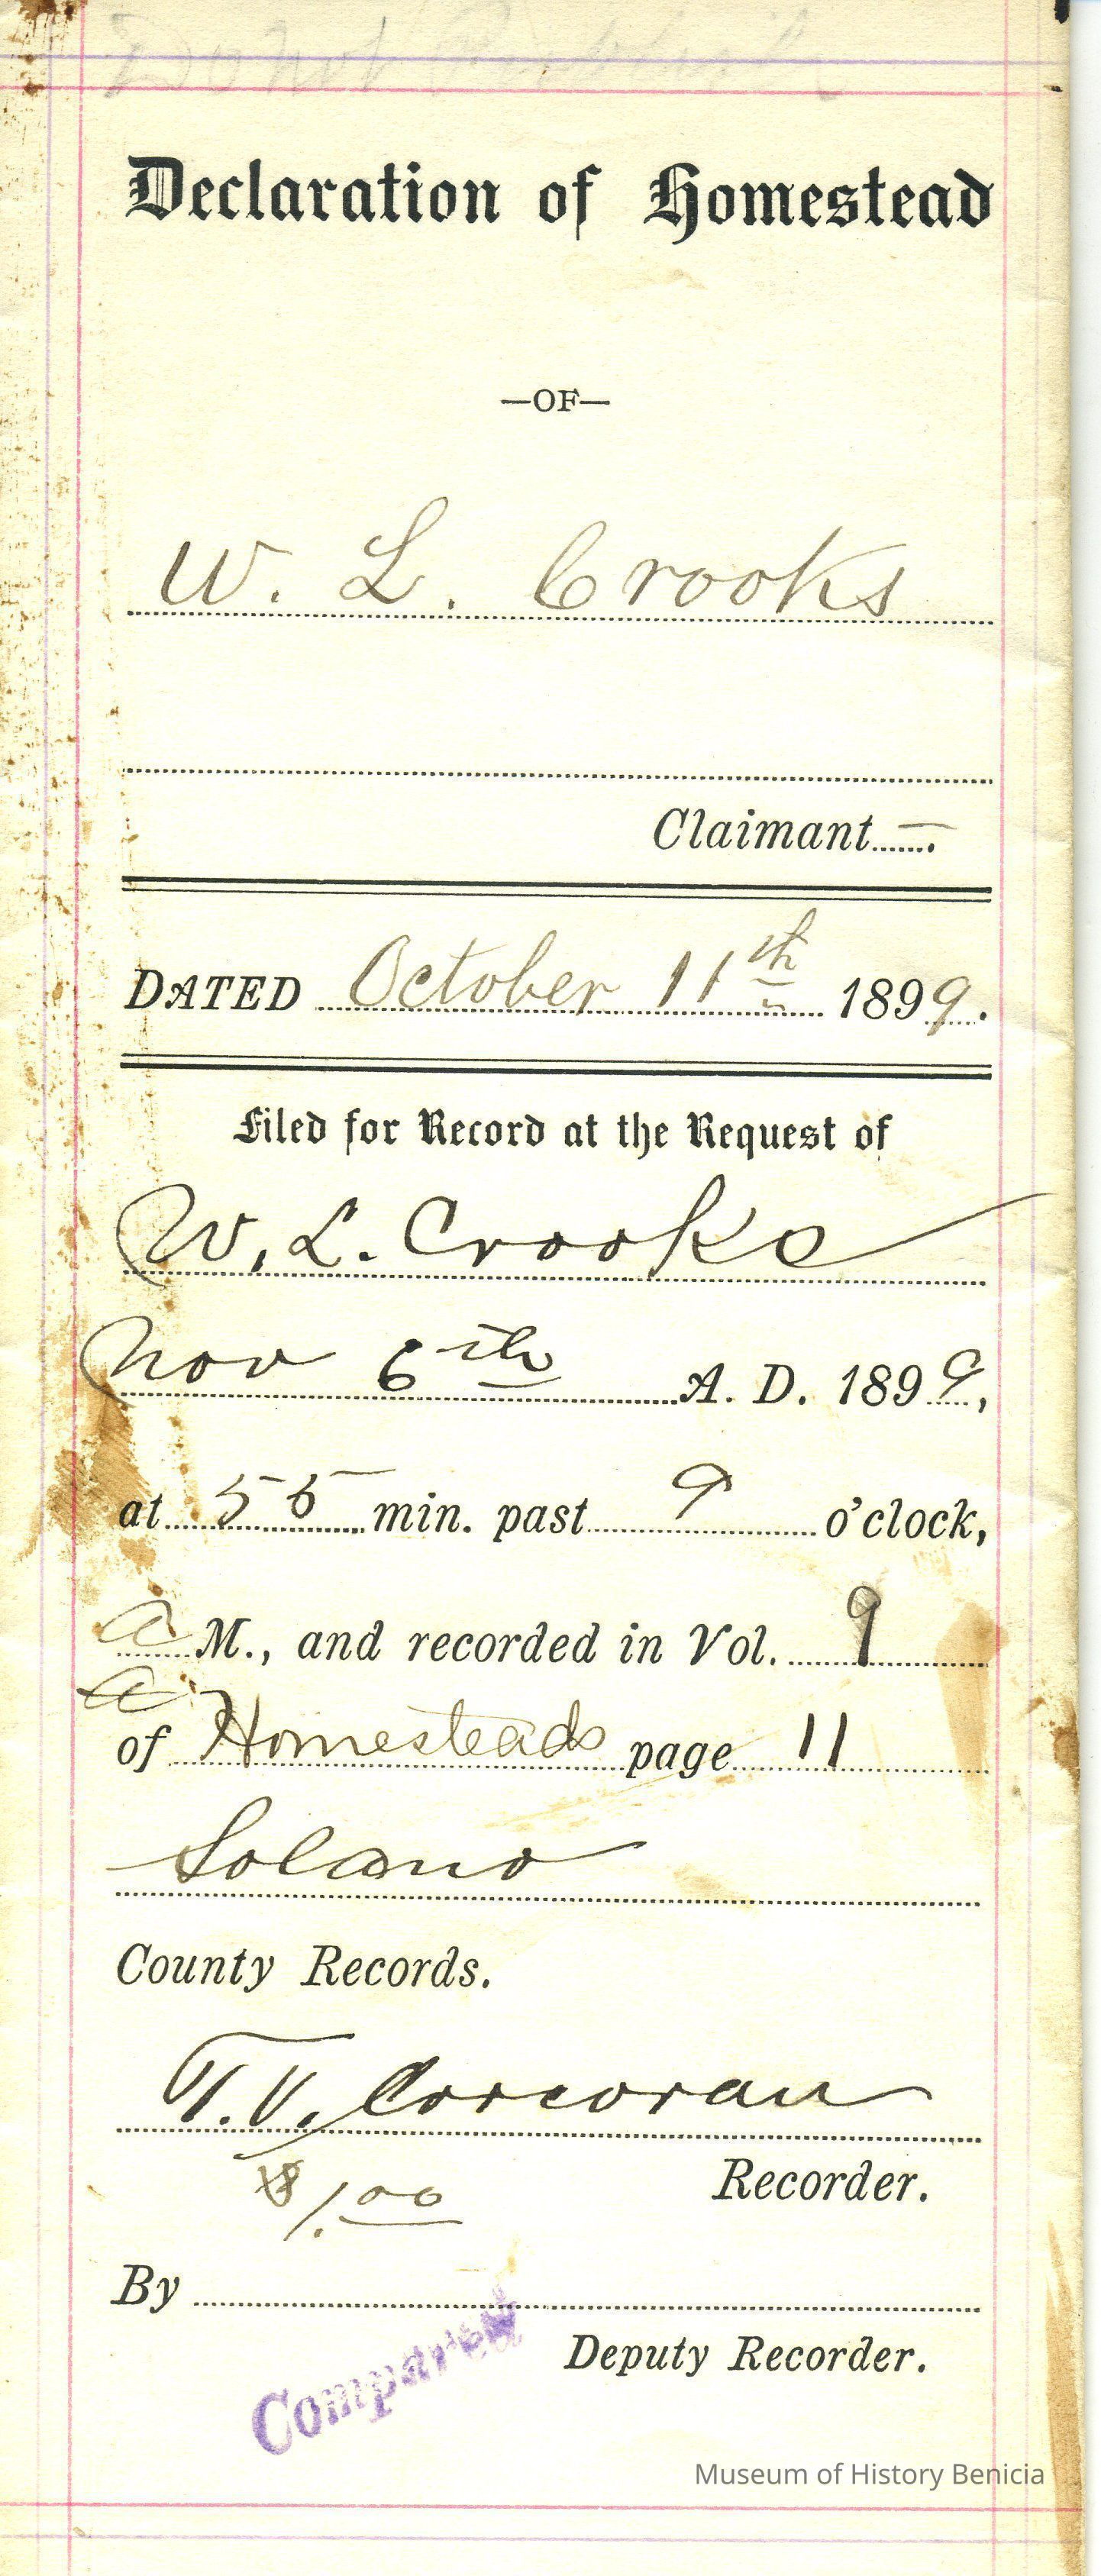 Do not
Declaration of Homestead
—OF—
W. L. Crooks
Claimant
DATED October 11th 1899.
Filed for Record at the Request of
W. L. Crooks
Nov 6th A. D. 1899,
at 55 min. past 9 o'clock,
a M., and recorded in Vol. 9
a
of Homesteads page 11
Solano
County Records.
T. V. Corcoran
Recorder.
$1.00
By
Deputy Recorder.
Compared
Museum of History Benicia